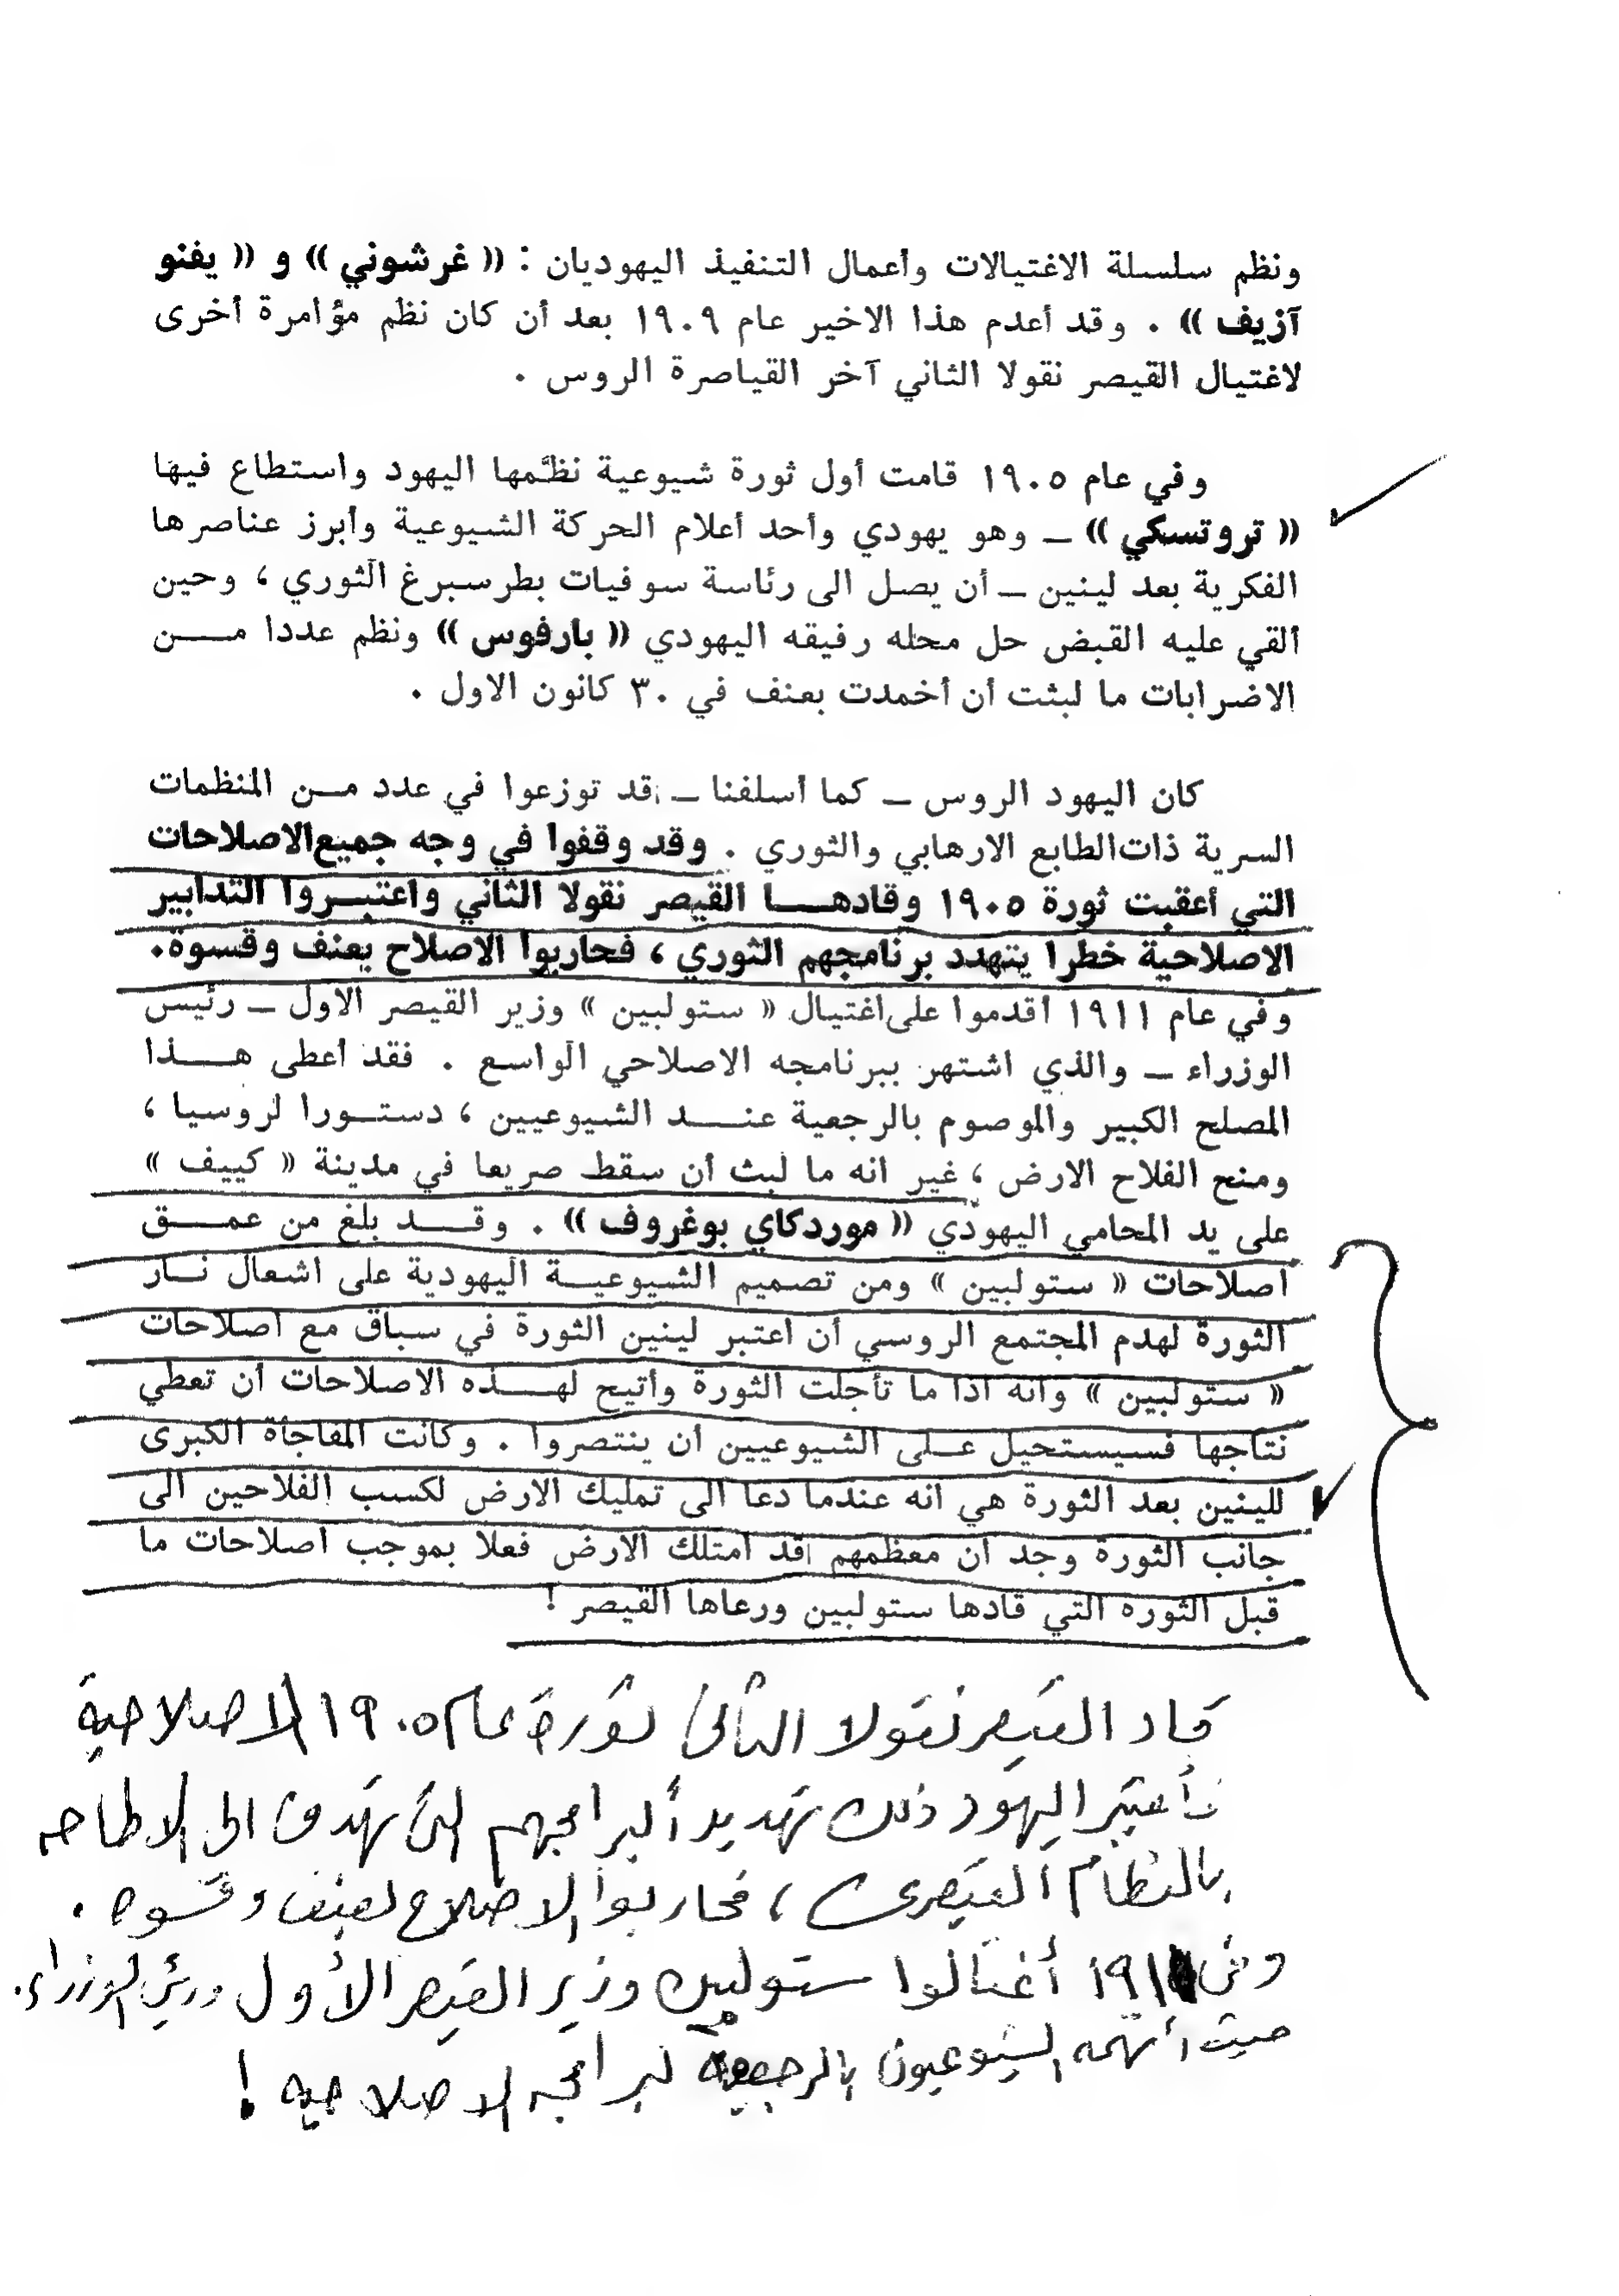 ونظم سلسلة الاغتيالات وأعمال التنفيذ اليهوديان : « غرشوني » و « يفنو
آزيف » . وقد أعدم هذا الاخير عام ١٩٠٩ بعد أن كان نظم مؤامرة أخرى
لاغتيال القيصر نقولا الثاني آخر القياصرة الروس .
وفي عام ١٩٠٥ قامت أول ثورة شيوعية نظّمها اليهود واستطاع فيها
« تروتسكي » ــ وهو يهودي وأحد أعلام الحركة الشيوعية وأبرز عناصرها
الفكرية بعد لينين ــ أن يصل الى رئاسة سوفيات بطرسبرغ الثوري ، وحين
ألقي عليه القبض حل محله رفيقه اليهودي « بارفوس » ونظم عددا مــن
الاضرابات ما لبثت أن أخمدت بعنف في ٣٠ كانون الاول .
كان اليهود الروس ــ كما أسلفنا ــ قد توزعوا في عدد مــن المنظمات
السرية ذات الطابع الارهابي والثوري . وقد وقفوا في وجه جميع الاصلاحات
التي أعقبت ثورة ١٩٠٥ وقادهــا القيصر نقولا الثاني واعتبــروا التدابير
الاصلاحية خطرا يتهدد برنامجهم الثوري ، فحاربوا الاصلاح بعنف وقسوة.
وفي عام ١٩١١ أقدموا على اغتيال « ستولبين » وزير القيصر الاول ــ رئيس
الوزراء ــ والذي اشتهر ببرنامجه الاصلاحي الواسع . فقد أعطى هــذا
المصلح الكبير والموصوم بالرجعية عنــد الشيوعيين ، دستــورا لروسيا ،
ومنح الفلاح الارض ، غير انه ما لبث أن سقط صريعا في مدينة « كييف »
على يد المحامي اليهودي « موردكاي بوغروف » . وقــد بلغ من عمــق
اصلاحات « ستولبين » ومن تصميم الشيوعيــة اليهودية على اشعال نــار
الثورة لهدم المجتمع الروسي أن اعتبر لينين الثورة في سباق مع اصلاحات
« ستولبين » وانه اذا ما تأجلت الثورة وأتيح لهــذه الاصلاحات أن تعطي
نتاجها فسيستحيل عــلى الشيوعيين ان ينتصروا . وكانت المفاجأة الكبرى
للينين بعد الثورة هي انه عندما دعا الى تمليك الارض لكسب الفلاحين الى
جانب الثورة وجد ان معظمهم قد امتلك الارض فعلا بموجب اصلاحات ما
قبل الثوره التي قادها ستولبين ورعاها القيصر !
قاد القيصر نقولا الثاني ثورة عام ١٩٠٥ الاصلاحية
فأعتبر اليهود ذلك تهديد ألبرامجهم التي تهدف الى الاطاحه
بالنظام القيصرى ، فحاربوا الاصلاح بعنف وقسوه .
وفى ١٩١١ أغتالوا ستولبين وزير القيصر الأول ورئيس الوزراء.
حيث أتهمه الشيوعيون بالرجعية لبرامجه الاصلاحيه !